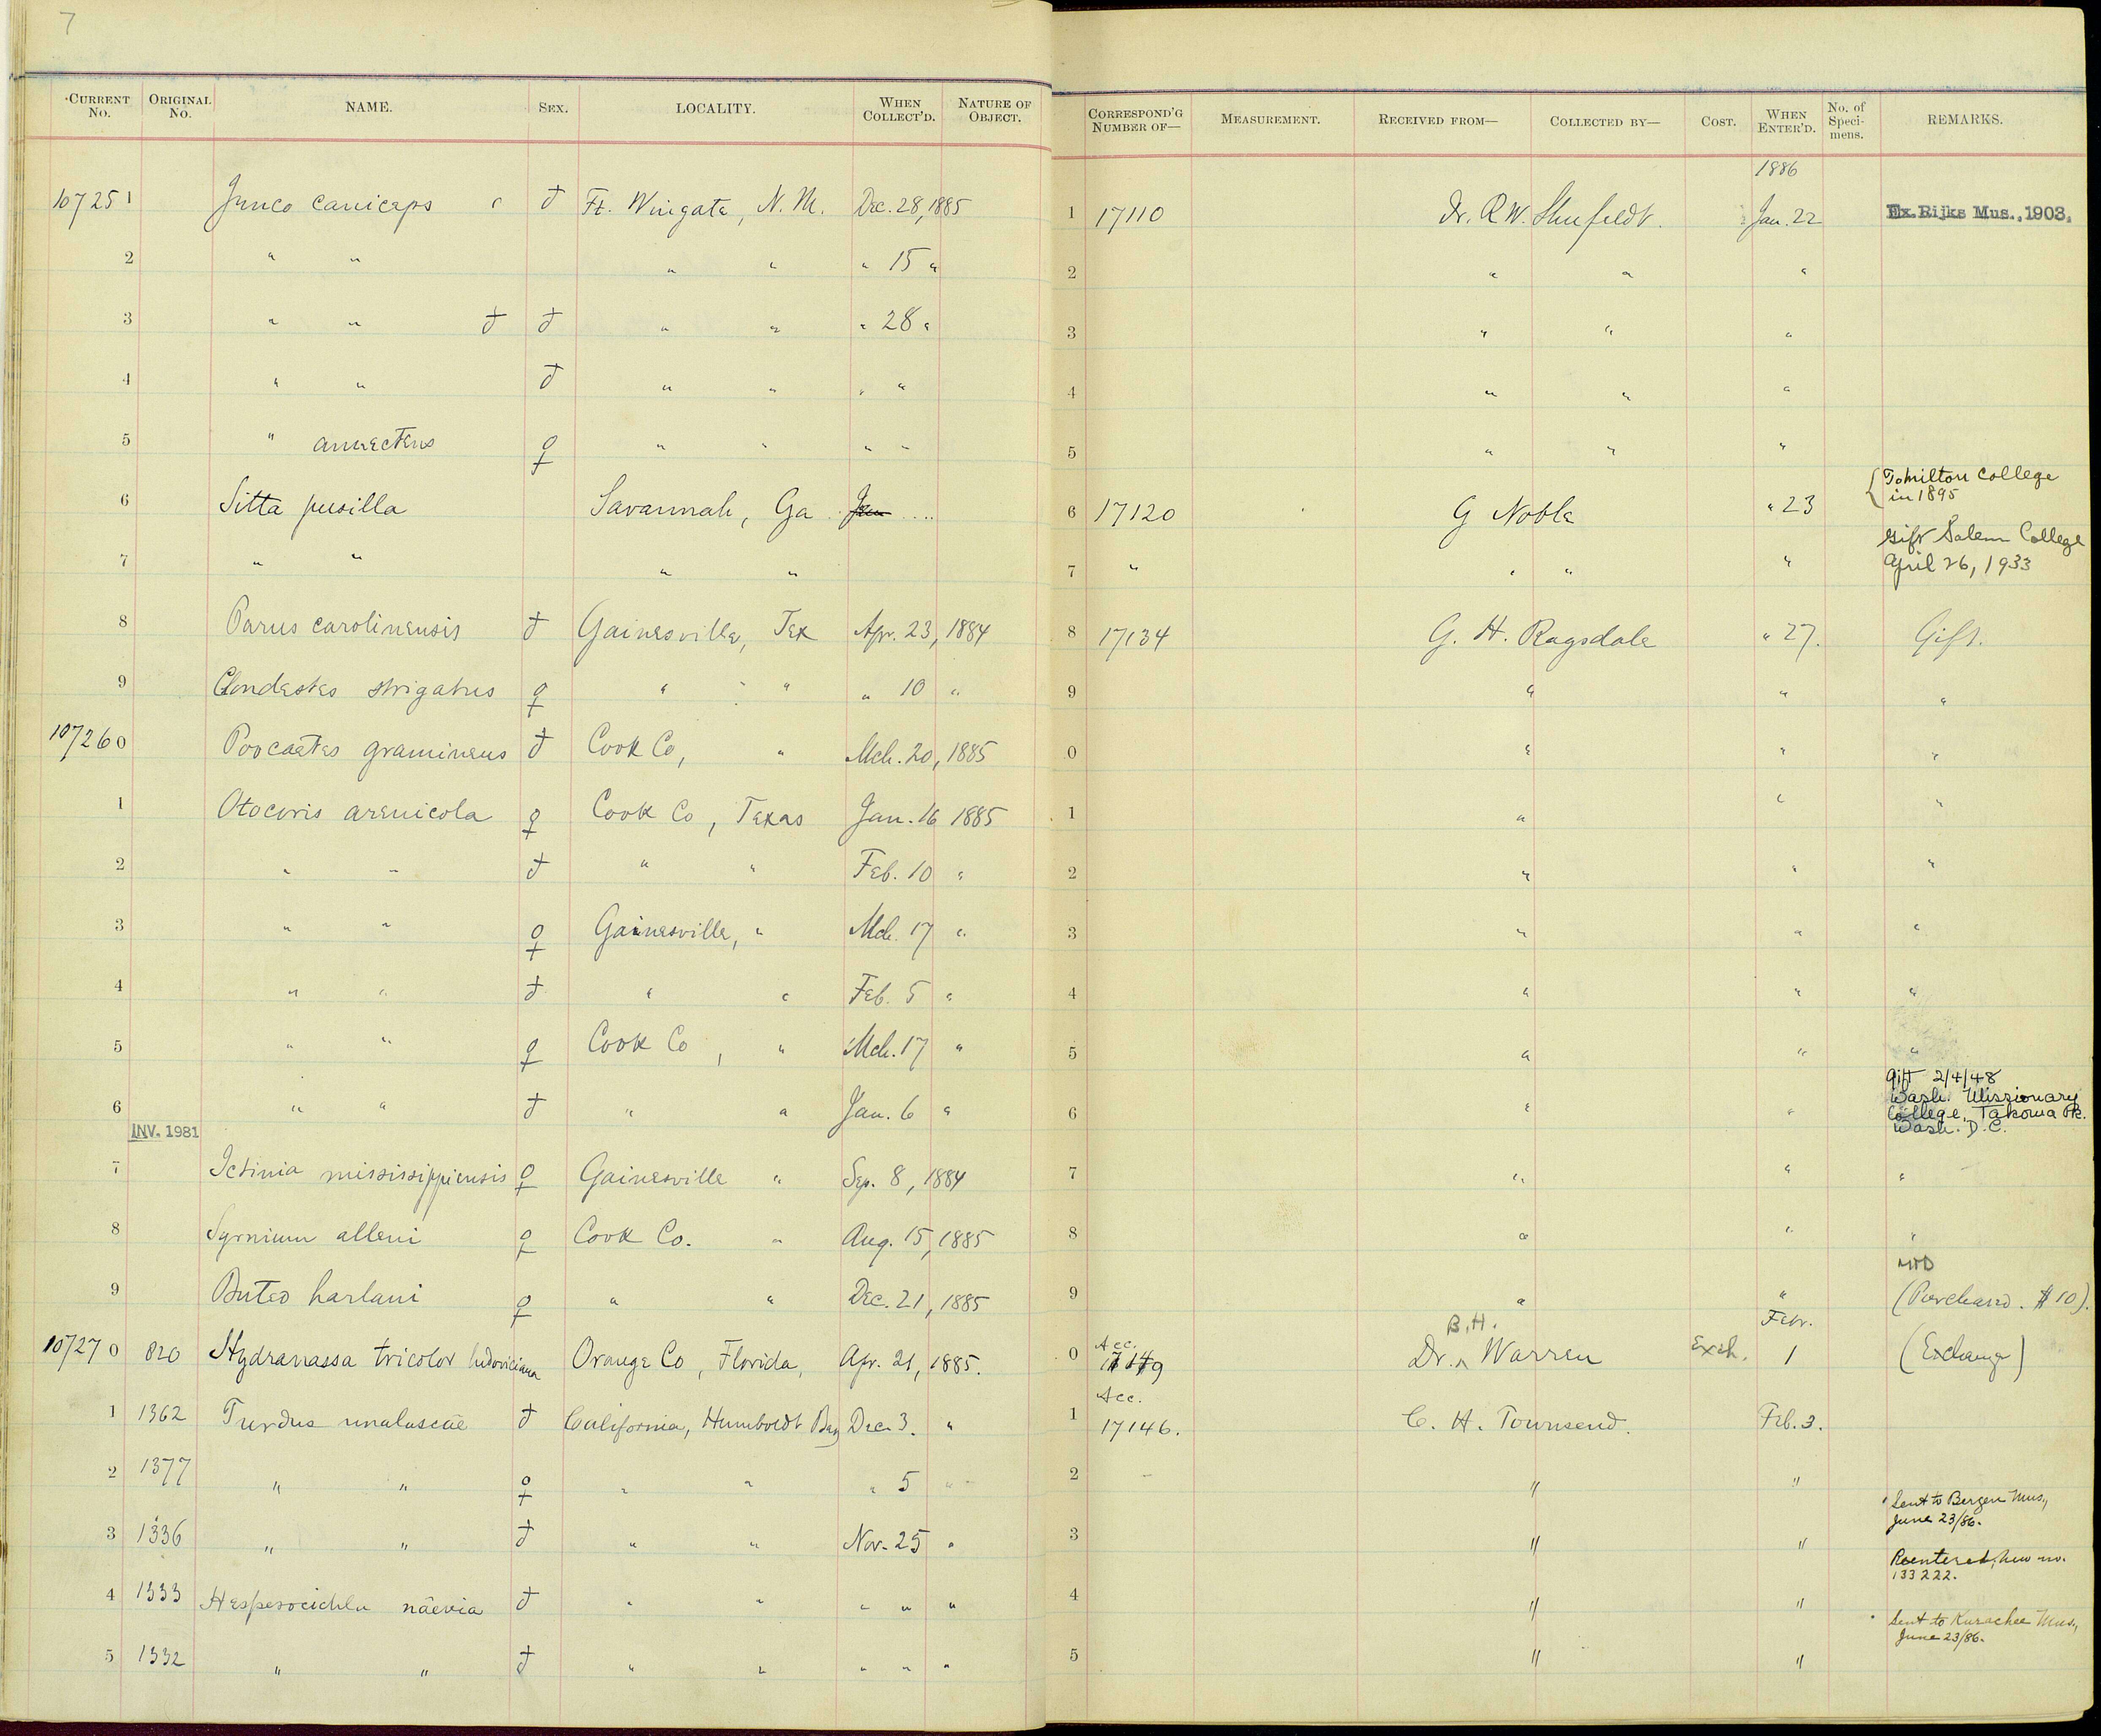 7
CURRENT No. ORIGINAL No. NAME. SEX. LOCALITY. WHEN COLLECT'D. NATURE OF OBJECT. CORRESPOND'G NUMBER OF— MEASUREMENT. RECEIVED FROM— COLLECTED BY— COST. WHEN ENTER'D. No. of Specimens. REMARKS.
1886
107251 Junco caniceps ♂ Ft. Wingate, N.M. Dec. 28, 1885 1 17110 Dr. R.W. Shufeldt. Jan. 22 Ex. Rijks Mus., 1903.
2 " " " " " 15 " 2 " " "
3 " " ♂ ♂ " " " 28 " 3 " " "
4 " " ♂ " " " " 4 " " "
5 " annectens ♀ " " " " 5 " " "
6 Sitta pusilla Savannah, Ga. 6 17120 G Noble " 23 { To Milton College
in 1895
7 " " " " 7 " " " " Gift Salem College
April 26, 1933
8 Parus carolinensis ♂ Gainesville, Tex Apr. 23, 1884 8 17134 G. H. Ragsdale " 27. Gift.
9 Chondestes strigatus ♀ " " " 10 " 9 " " "
107260 Poocaetes gramineus ♂ Cook Co, " Mch. 20, 1885 0 " " "
1 Otocoris arenicola ♀ Cook Co, Texas Jan. 16 1885 1 " " "
2 " " ♂ " " Feb. 10 " 2 " " "
3 " " ♀ Gainesville, " Mch. 17 " 3 " " "
4 " " ♂ " " Feb. 5 " 4 " " "
5 " " ♀ Cook Co, " Mch. 17 " 5 " " "
6 " " ♂ " " Jan. 6 " 6 " " Gift 2/4/48
Wash. Missionary
College, Takoma Pk.
Wash. D.C.
INV. 1981
7 Ictinia mississippiensis ♀ Gainesville " Sep. 8, 1884 7 " " "
8 Syrnium alleni ♀ Cook Co. " Aug. 15, 1885 8 " " "
9 Buteo harlani ♀ " " Dec. 21, 1885 9 " " (Purchased. $10).
B.H. Febr.
107270 820 Hydranassa tricolor ludoviciana Orange Co, Florida, Apr. 21, 1885. 0 Acc. Dr. ^ Warren Exch. 1 (Exchange)
1 1362 Turdus unalascae ♂ California, Humboldt Bay Dec. 3. " 1 Acc. 17146. C. H. Townsend. Feb. 3.
2 1377 " " ♀ " " " 5 " 2 " "
3 1336 " " ♂ " " Nov. 25 " 3 " " Sent to Bergen Mus.,
June 23/86.
4 1333 Hesperocichla naevia ♂ " " " " " 4 " " Reentered, new no.
133222.
5 1332 " " ♂ " " " " " 5 " " Sent to Kurachee Mus.,
June 23/86.